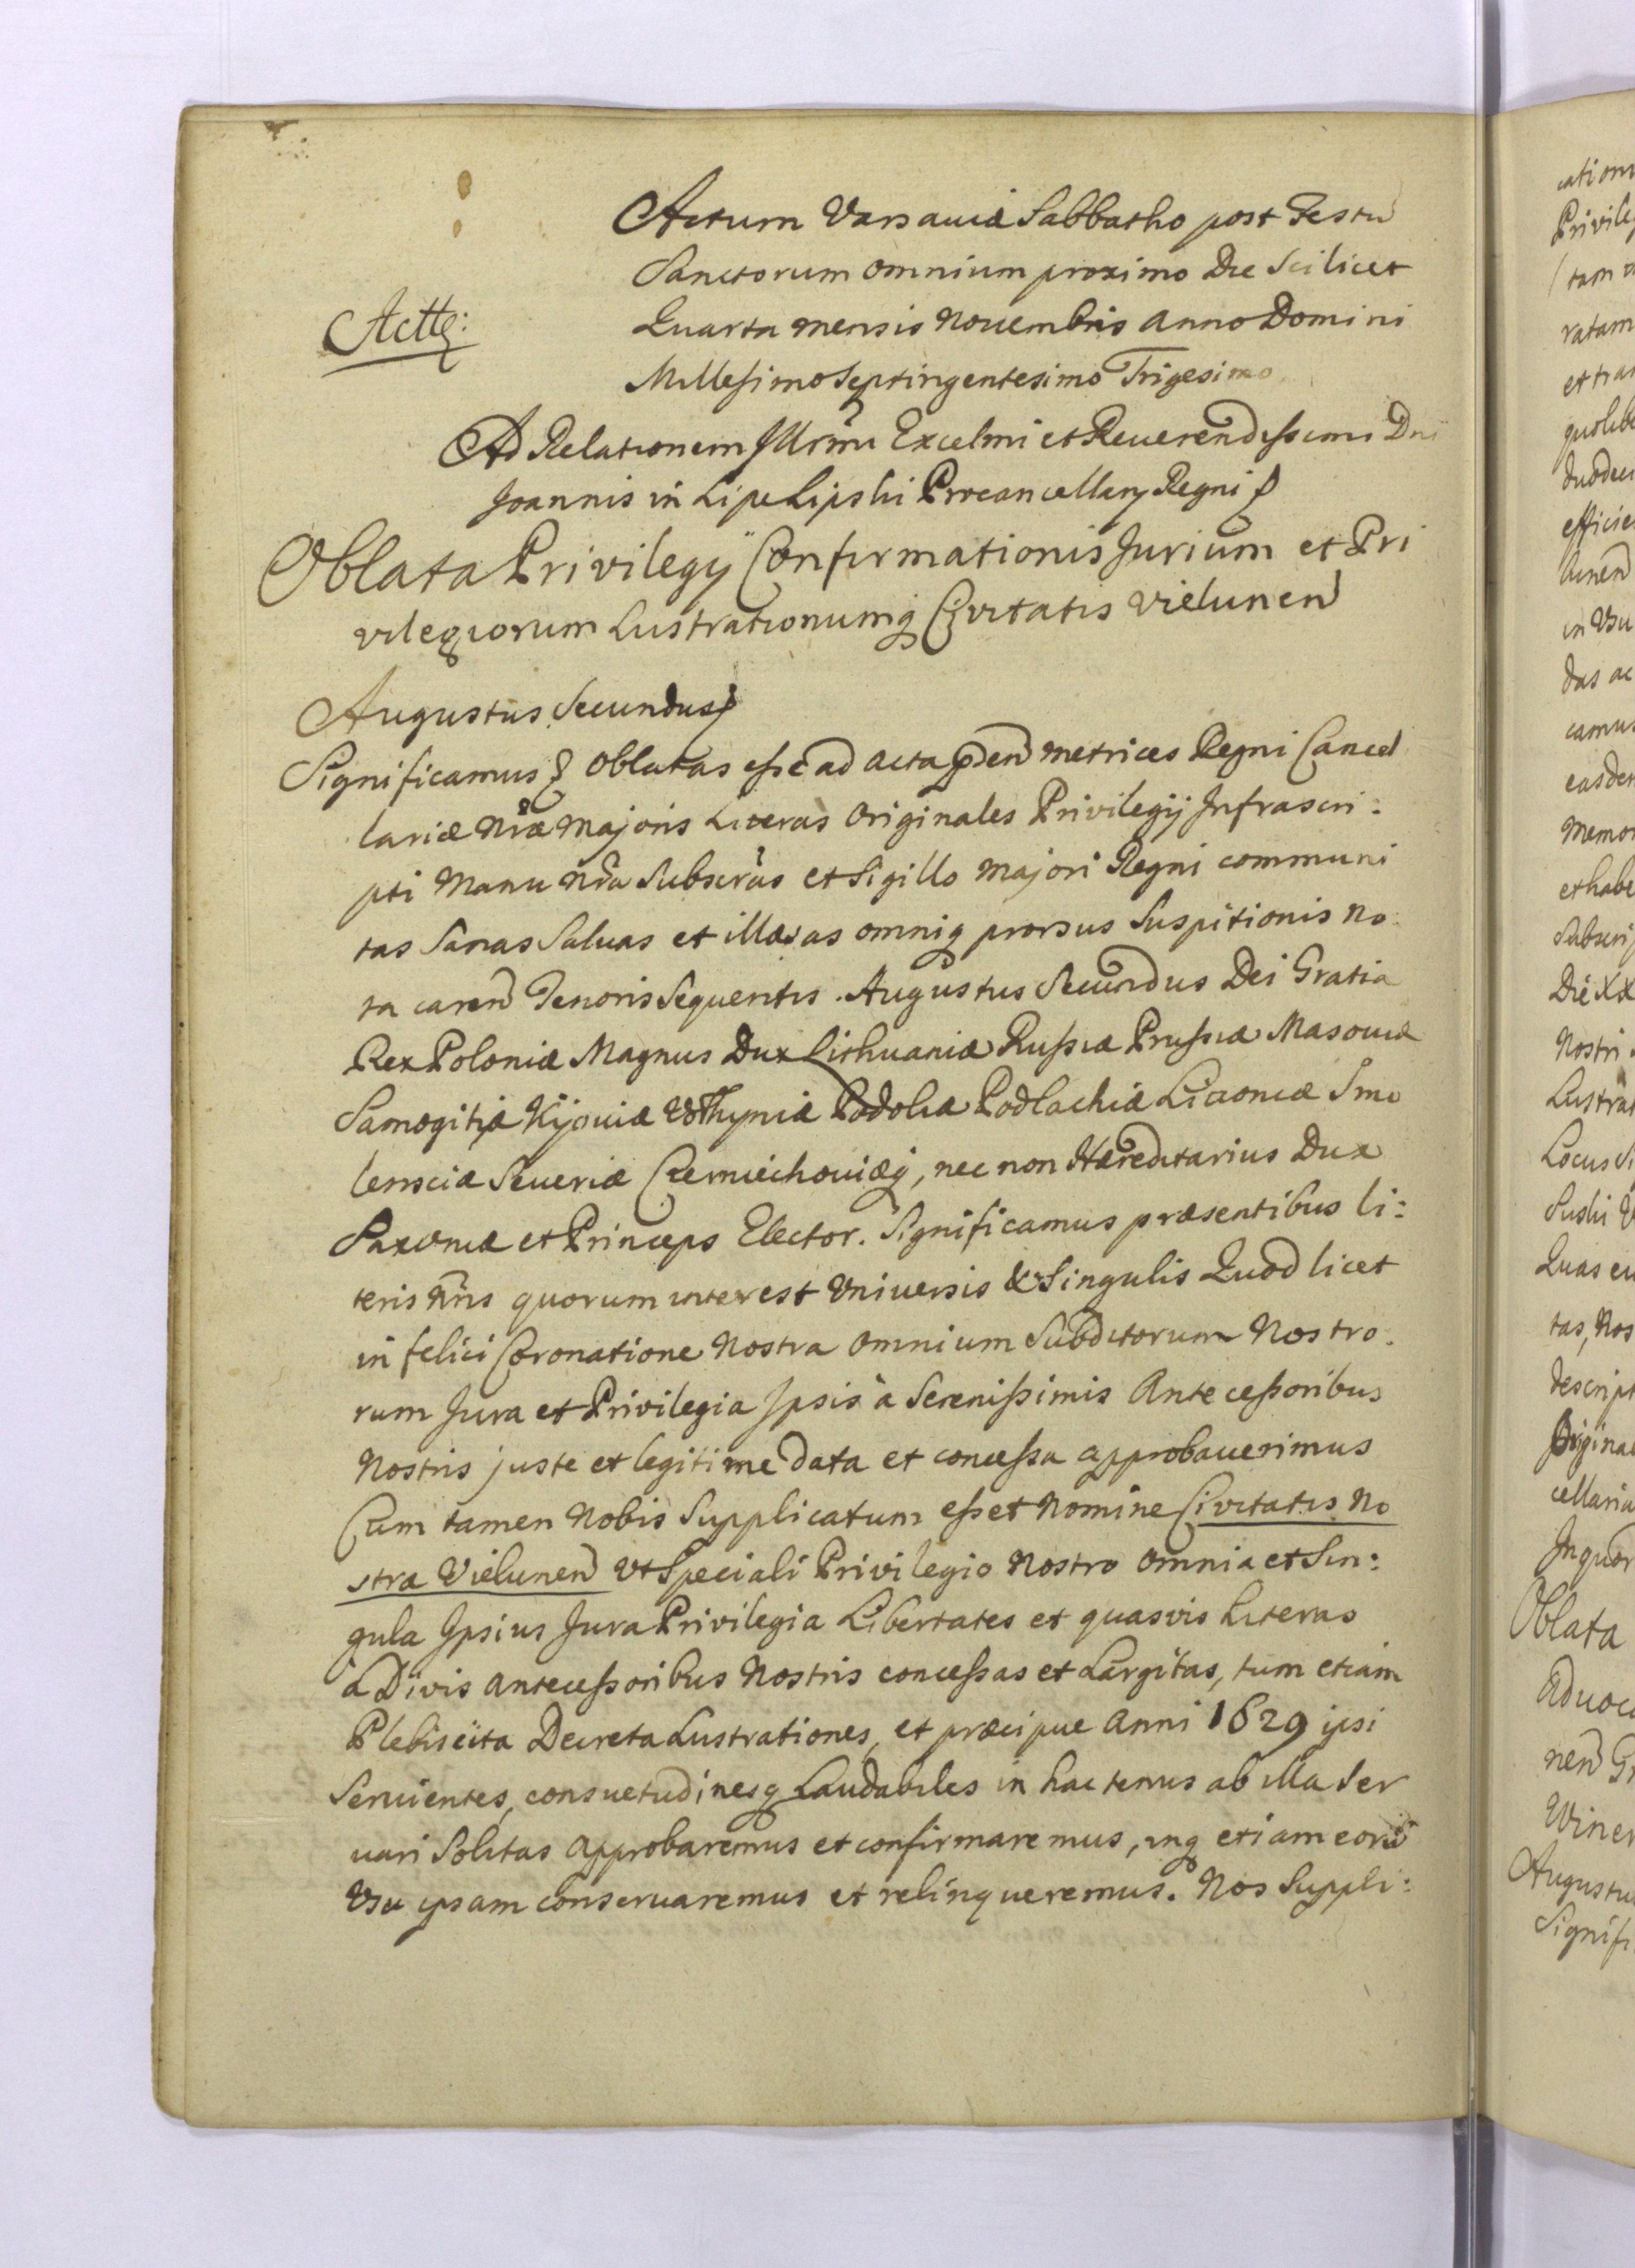 Actum Varsaviæ Sabbatho post Festu
Sanctorum omnium proximo Die Scilicet
Actt:
Quarta mensis Novembris Anno Domini
Millesimo Septingentesimo Trigesimo
Ad Relationem Illrmi Excelmi et Reverendissimi Dni
Joannis in Lipe Lipski Procancellarij Regni
Oblata Privilegij Confirmationis Jurium et Pri
vilegiorum Lustrationumq Civitatis Vielunen
Augustus Secundus
Significamus Oblatas esse ad acta pñden metrices Regni Cancel
lariæ Nræ Majoris Literas Originales Privilegij Infrascri:
pti Manu Nra Subscras et Sigillo Majori Regni communi
tas Sanas Salvas et illæsas omniq prorsus Suspitionis no
ta caren Tenoris Sequentis. Augustus Secundus Dei Gratia
Rex Poloniæ Magnus Dux Lithuaniæ Russiæ Prussiæ Masoviæ
Samogitiæ Kijoviæ Volhyniæ Podoliæ Podlachiæ Livoniæ Smo
lensciæ Severiæ Czerniechoviæq, nec non Hæreditarius Dux
Saxoniæ et Princeps Elector. Significamus præsentibus li:
teris Nris quorum interest Universis & Singulis Quod licet
in felici Coronatione Nostra omnium Subditorum Nostro
rum Jura et Privilegia Ipsis à Serenissimis Antecessoribus
Nostris juste et legitime data et concessa approbaverimus
Cum tamen Nobis Supplicatum esset Nomine Civitatis No
stræ Vielunen Ut Speciali Privilegio Nostro omnia et Sin:
gula Ipsius Jura Privilegia Libertates et quasvis Literas
à Divis antecessoribus Nostris concessas et Largitas, tum etiam
Plebiscita Decreta Lustrationes, et præcipue Anni 1629 ipsi
Servientes, consuetudinesq Laudabiles in hactenus ab illa Ser
vari Solitas approbaremus et confirmaremus, inq etiam eorũ
Usu ipsam conservaremus et relinqueremus. Nos Suppli:
Privileg
ratam
quolibe
efficie
in Usu
das ac
camus
easdem
memor
et habe
Subscrip
Die XX
Nostri
Lustrat
Locus Si
Quas eu
tas, Nos
descript
Original
cellaria
In quor
Oblata
Advoca
nen Gr
Augustu
Signifi